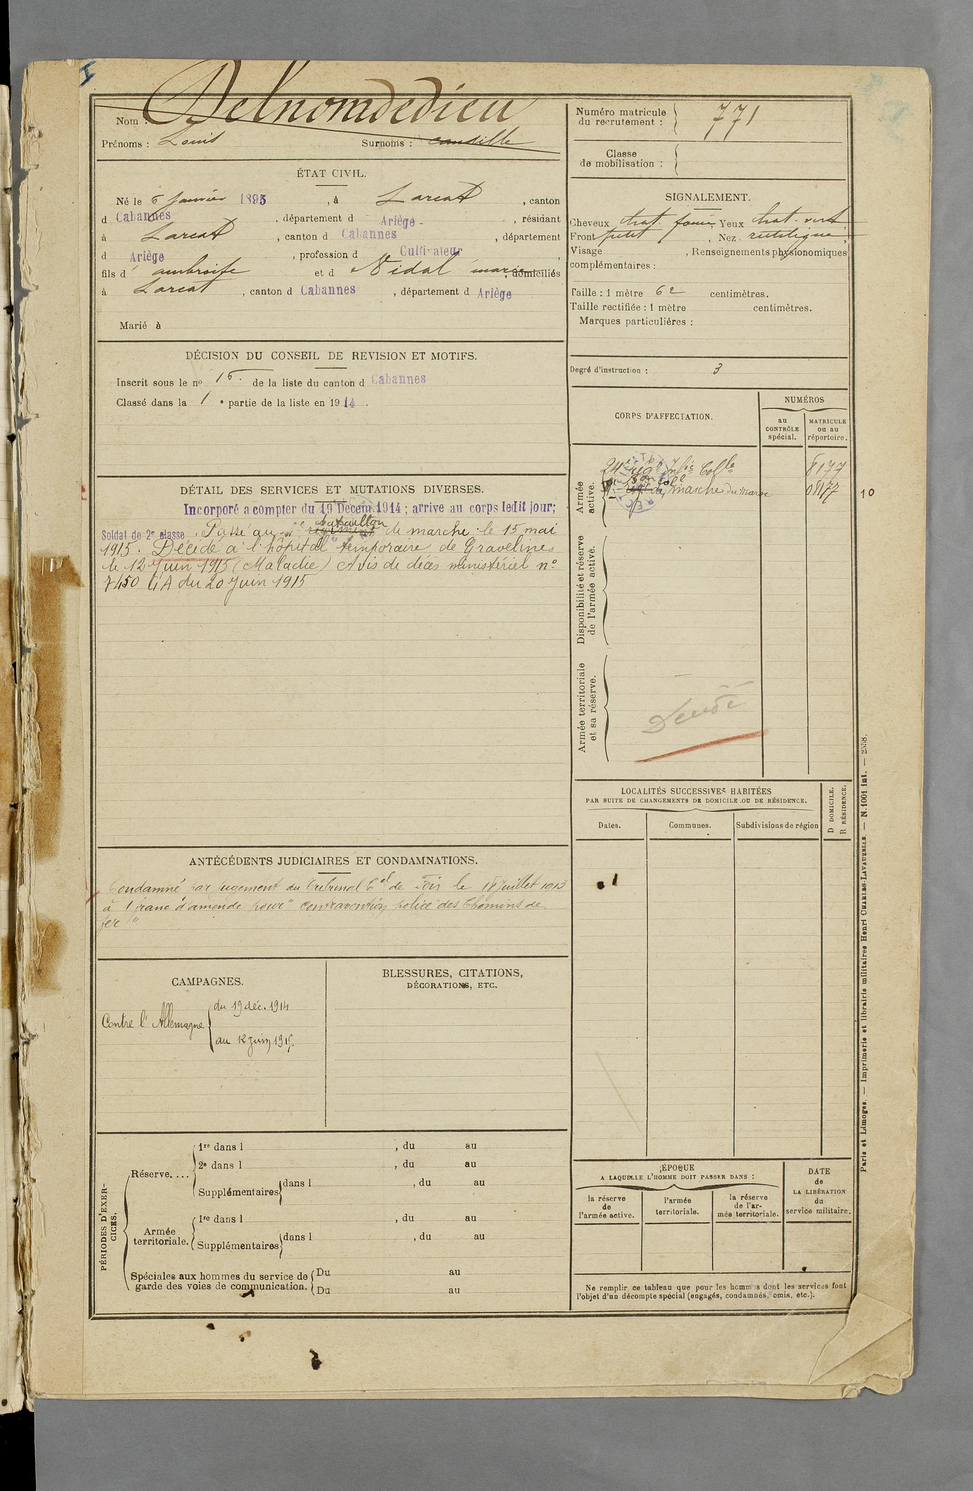 Nom : Delnomdedieu
Prénoms : Louis Surnoms :
ÉTAT CIVIL.
Né le 6 janvier 1895, à Larcat, canton
d Cabannes, département d Ariège, résidant
à Larcat, canton d Cabannes, département
d Ariège, profession d Cultivateur,
fils d' ambroise et d Nidal marie, domiciliés
à Larcat, canton d Cabannes, département d Ariège
Marié à
DÉCISION DU CONSEIL DE REVISION ET MOTIFS.
Inscrit sous le no 15 de la liste du canton d Cabannes
Classé dans la 1e partie de la liste en 1914.
DÉTAIL DES SERVICES ET MUTATIONS DIVERSES.
Incorporé a compter du 19 Décem. 1914 ; arrive au corps ledit jour;
bataillon
Soldat de 2e classe. Passé au régiment de marche le 15 mai
1915. Décédé à l'hôpital temporaire de Gravelines
le 12 Juin 1915 (Maladie) Avis de décès ministériel no
7450 GA du 20 Juin 1915
ANTÉCÉDENTS JUDICIAIRES ET CONDAMNATIONS.
Condamné par jugement du Tribunal Cel de Foix le 18 Juillet 1913
à 1 franc d'amende pour "contravention police des Chemins de
fer"
CAMPAGNES.
Contre l'Allemagne
du 19 déc. 1914
au 12 juin 1915.
BLESSURES, CITATIONS,
DÉCORATIONS, ETC.
PÉRIODES D'EXERCICES.
Réserve....
1re dans l , du au
2e dans l , du au
Supplémentaires dans l , du au
Armée
territoriale.
1re dans l , du au
Supplémentaires dans l , du au
Spéciales aux hommes du service de
garde des voies de communication.
Du au
Du au
Numéro matricule
du recrutement : 771
Classe
de mobilisation :
SIGNALEMENT.
Cheveux chat. foncé Yeux chat. vert
Front petit, Nez rectiligne,
Visage , Renseignements physionomiques
complémentaires :
Taille : 1 mètre 62 centimètres.
Taille rectifiée : 1 mètre centimètres.
Marques particulières :
Degré d'instruction : 3
CORPS D'AFFECTATION.
NUMÉROS
au
CONTRÔLE
spécial.
MATRICULE
ou au
répertoire.
Armée
active.
24e rég. Infie Colle 8177
marche du Maroc 10
Disponibilité et réserve
de l'armée active.
Armée territoriale
et sa réserve.
Décédé
LOCALITÉS SUCCESSIVES HABITÉES
PAR SUITE DE CHANGEMENTS DE DOMICILE OU DE RÉSIDENCE.
Dates.
Communes.
Subdivisions de région
D DOMICILE.
R RÉSIDENCE.
ÉPOQUE
A LAQUELLE L'HOMME DOIT PASSER DANS :
la réserve
de
l'armée active.
l'armée
territoriale.
la réserve
de l'ar-
mée territoriale.
DATE
de
LA LIBÉRATION
du
service militaire.
Ne remplir ce tableau que pour les hommes dont les services font
l'objet d'un décompte spécial (engagés, condamnés, omis, etc.).
Paris et Limoges. — Imprimerie et librairie militaires Henri CHARLES-LAVAUZELLE. — N. 1001 int. — 2338.